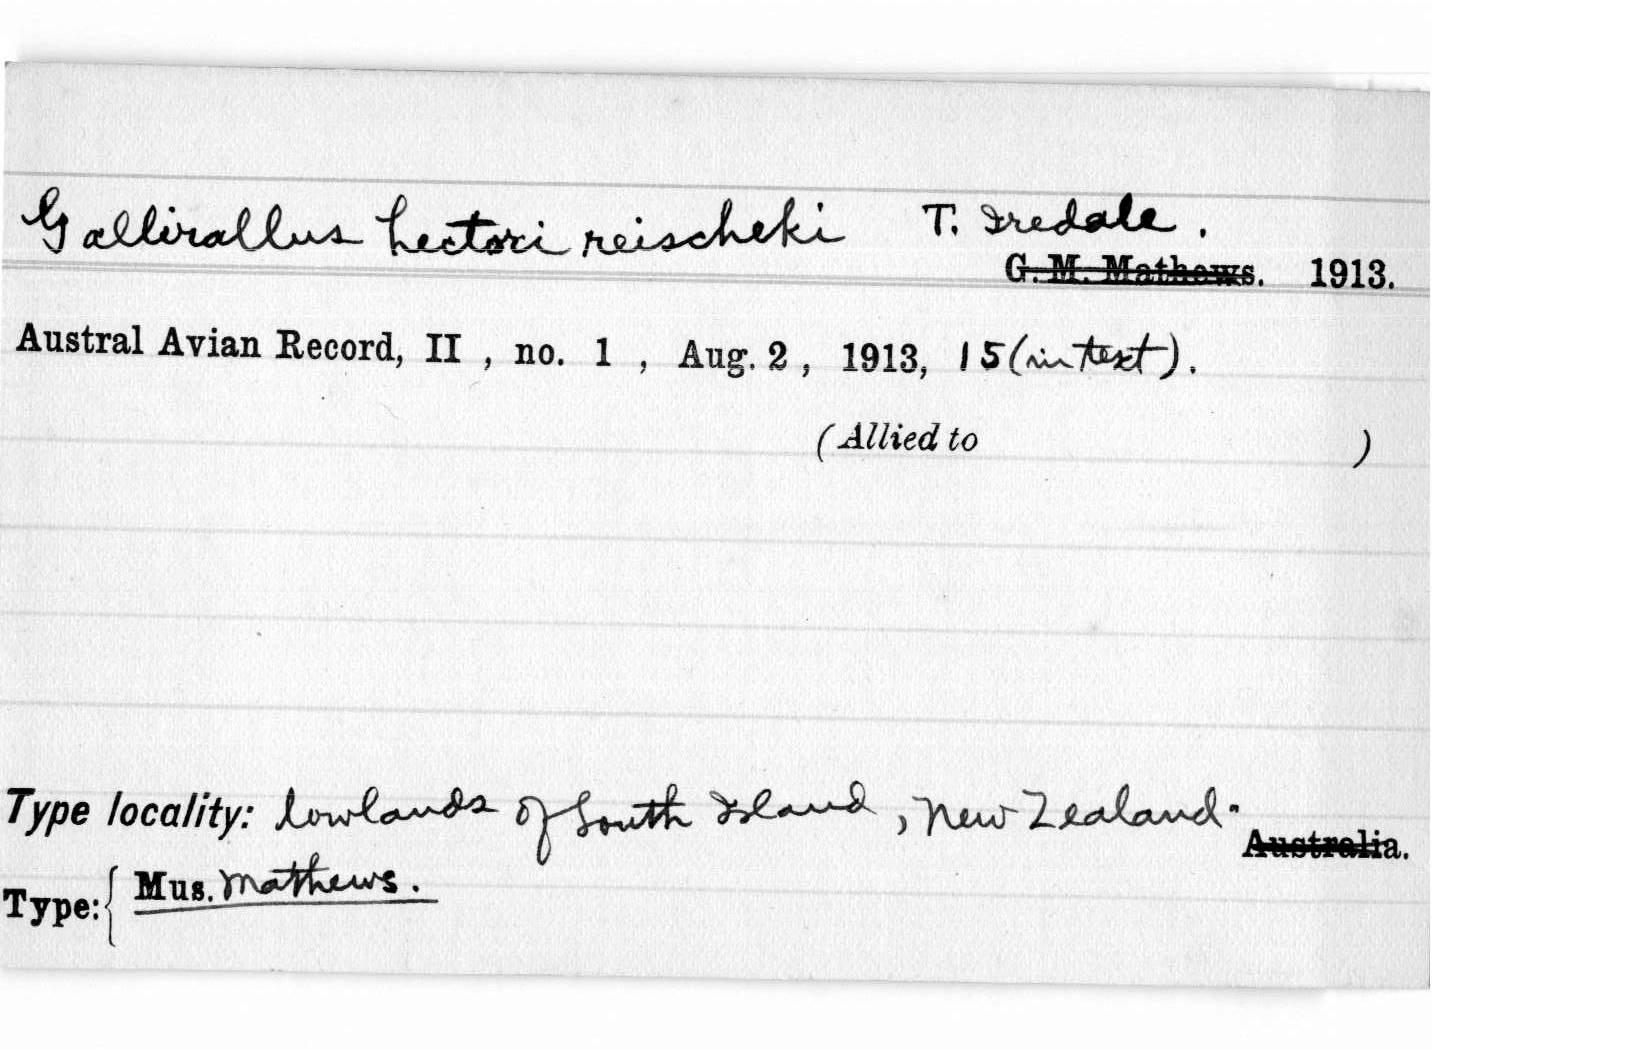 Gallirallus hectori reischeki T. Iredale.
G. M. Mathews. 1913.
Austral Avian Record, II , no. 1 , Aug. 2 , 1913, 15 (in text).
(Allied to )
Type locality: lowlands of South Island, New Zealand.
Australia.
Type: { Mus. Mathews.